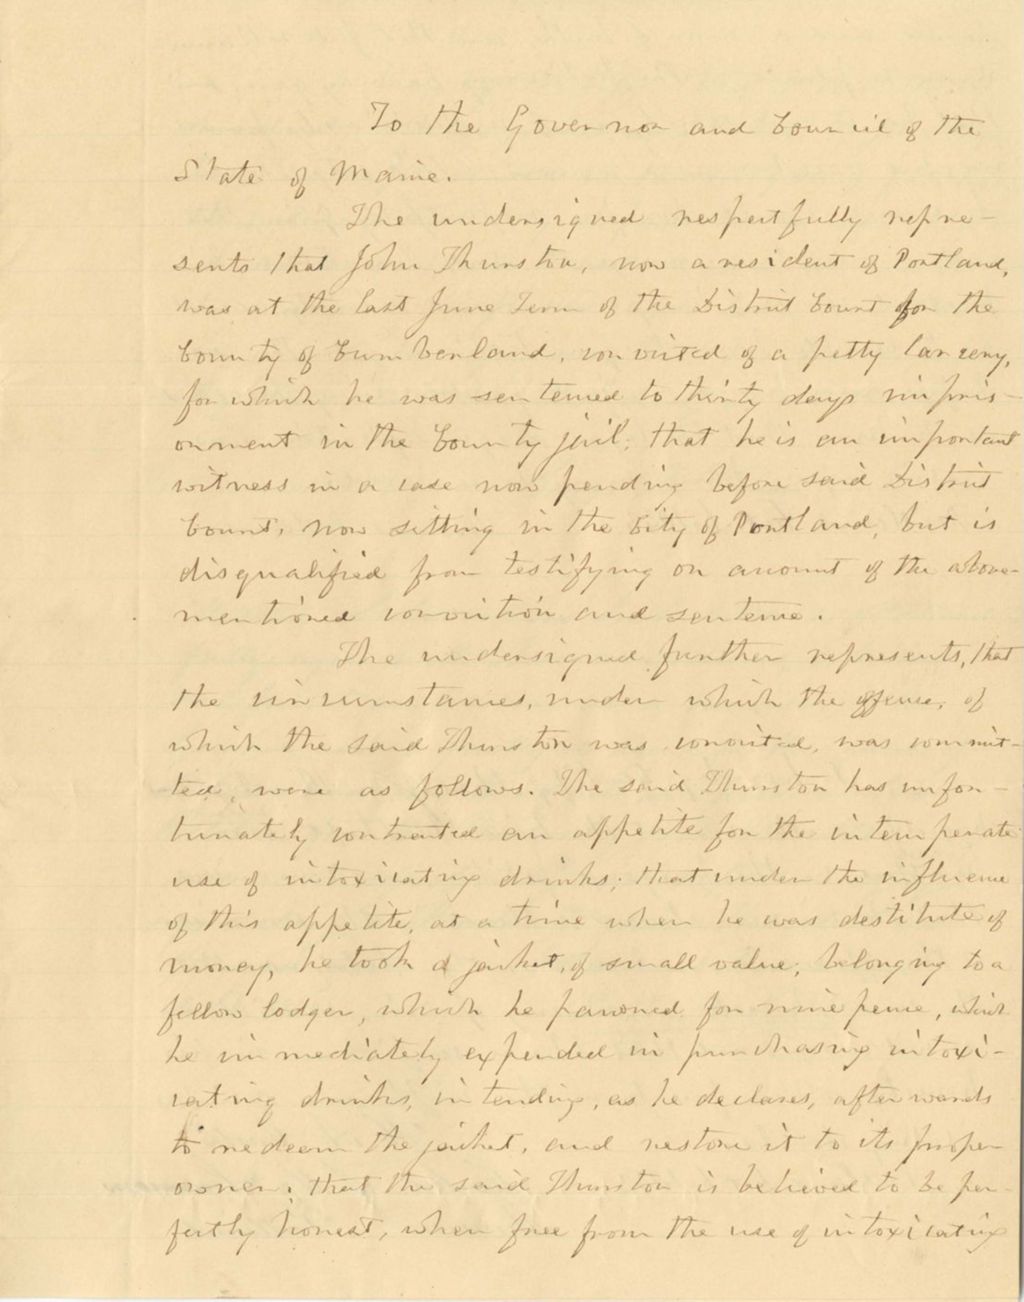 To the Governor and Council of the
State of Maine.
The undersigned respectfully repre-
sents that John Thurston, now a resident of Portland,
was at the last June Term of the District Court for the
County of Cumberland, convicted of a petty larceny,
for which he was sentenced to thirty days impris-
onment in the County jail; that he is an important
witness in a case now pending before said District
Court, now sitting in the City of Portland, but is
disqualified from testifying on account of the above-
mentioned conviction and sentence.
The undersigned further represents, that
the circumstances, under which the offence, of
which the said Thurston was convicted, was commit-
ted, were as follows. The said Thurston has unfor-
tunately contracted an appetite for the intemperate
use of intoxicating drinks; that under the influence
of this appetite, at a time when he was destitute of
money, he took a jacket, of small value, belonging to a
fellow lodger, which he pawned for nine pence, which
he immediately expended in purchasing intoxi-
cating drinks, intending, as he declares, afterwards
to redeem the jacket, and restore it to its proper
owner; that the said Thurston is believed to be per-
fectly honest, when free from the use of intoxicating